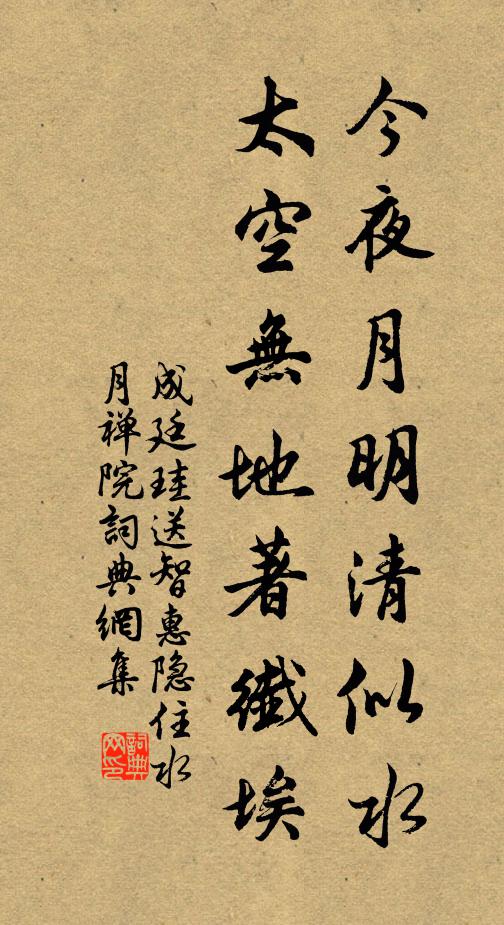 今夜月明清似水
太空無地著纖埃
成廷珪送智惠隐住水
月禅院詞典網集
詞典
网印